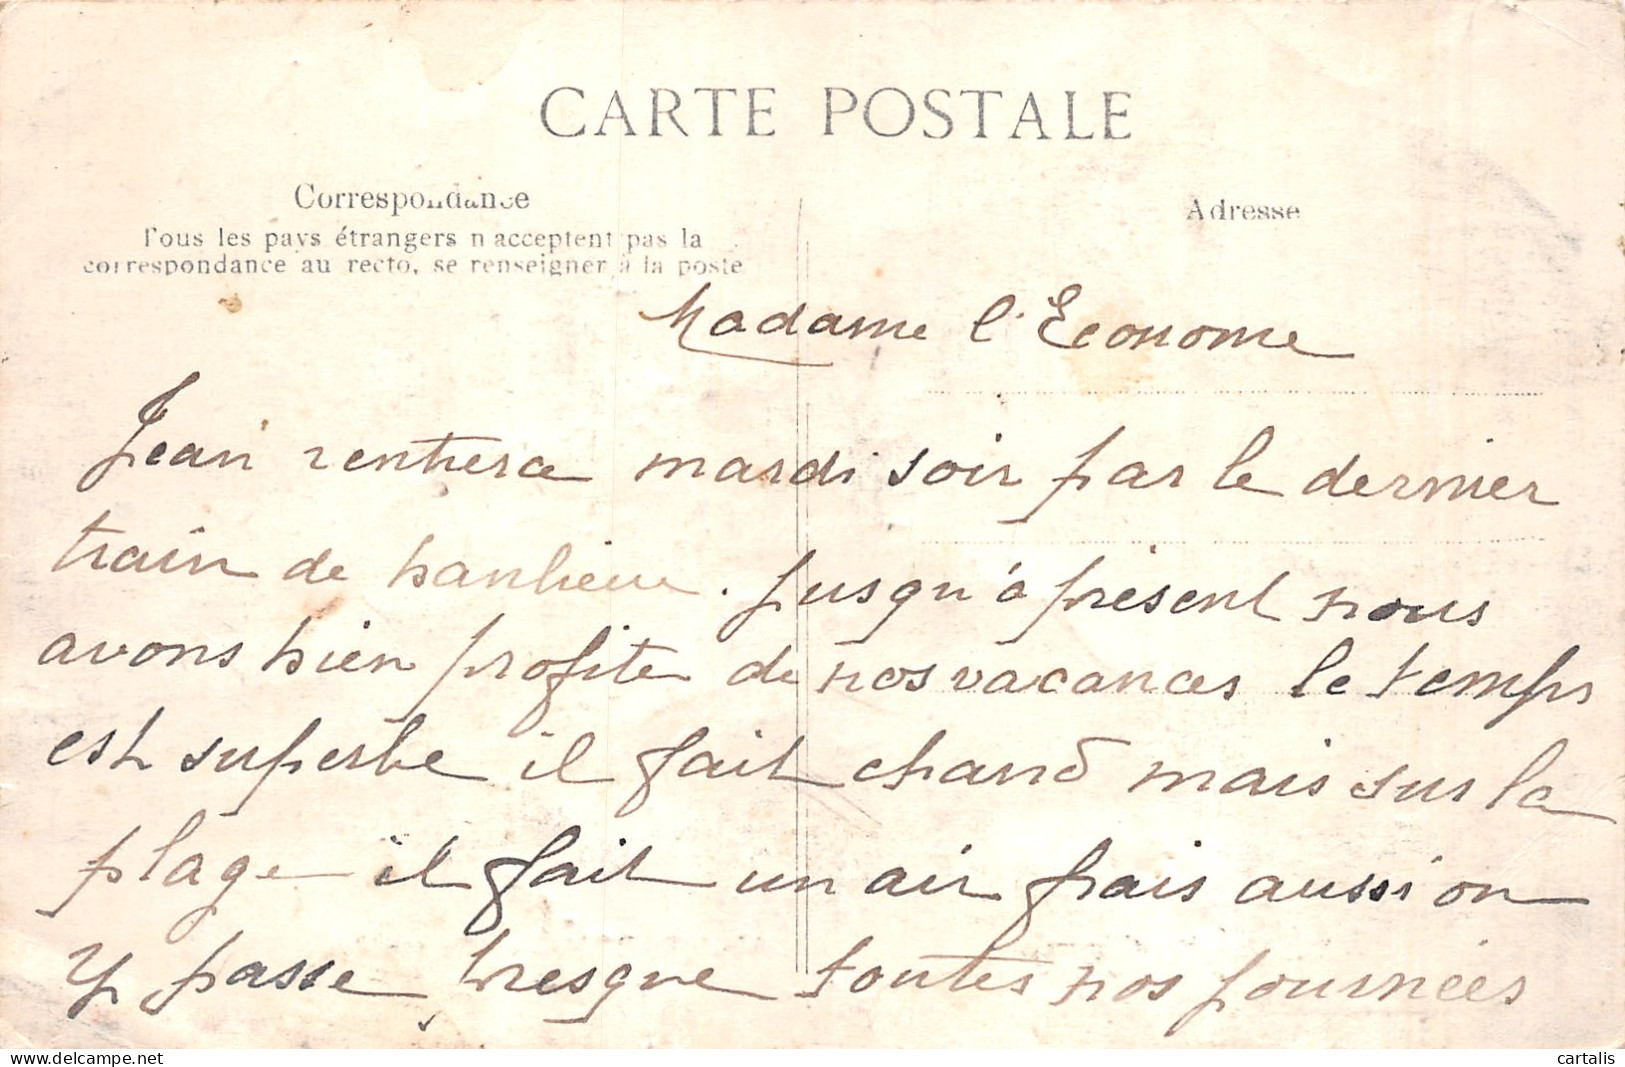 CARTE POSTALE
Correspondance
Tous les pays étrangers n'acceptent pas la
correspondance au recto, se renseigner à la poste
Adresse
Madame l'Econome
Jean rentrera mardi soir par le dernier
train de banlieue. Jusqu'à présent nous
avons bien profité de nos vacances le temps
est superbe il fait chaud mais sur la
plage il fait un air frais aussi on
y passe presque toutes nos journées
delcampe.net
cartalis